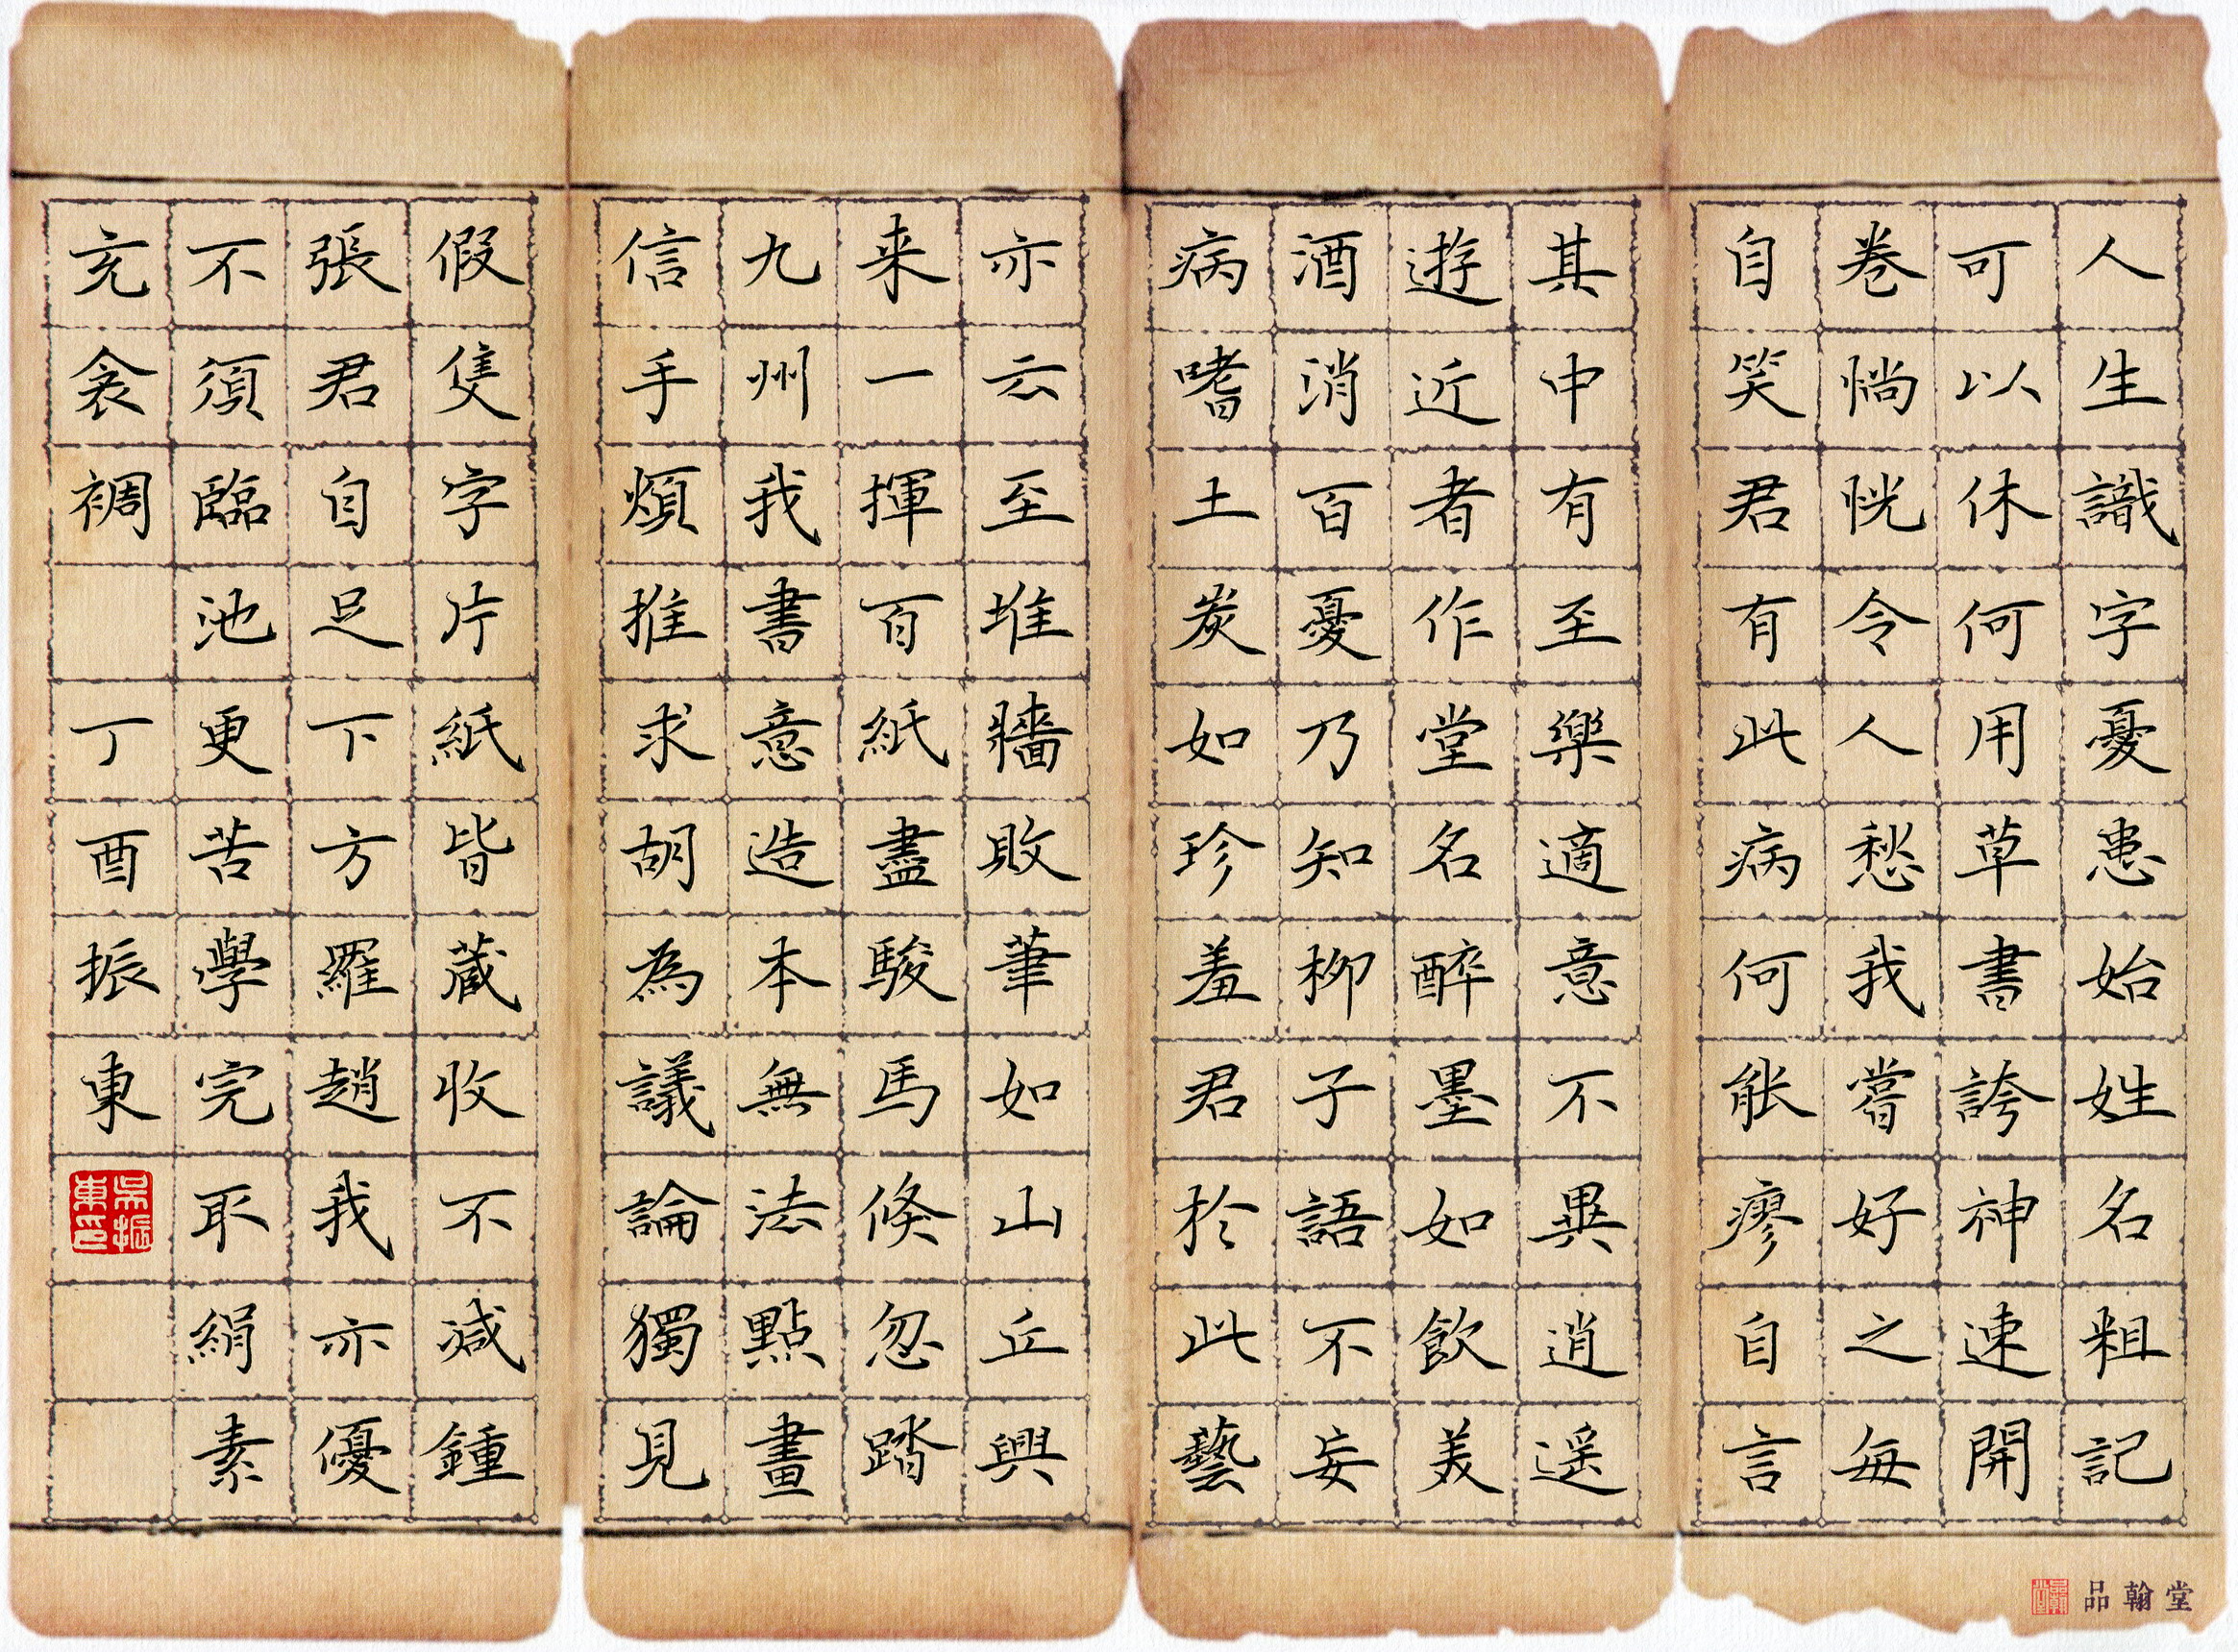 人生識字憂患始姓名粗記
可以休何用草書誇神速開
卷惝恍令人愁我嘗好之每
自笑君有此病何能瘳自言
其中有至樂適意不異逍遥
遊近者作堂名醉墨如飲美
酒消百憂乃知柳子語不妄
病嗜土炭如珍羞君於此藝
亦云至堆牆敗筆如山丘興
来一揮百紙盡駿馬倏忽踏
九州我書意造本無法點畫
信手煩推求胡為議論獨見
假隻字片紙皆藏收不减鍾
張君自足下方羅趙我亦優
不須臨池更苦學完取絹素
充衾裯
丁酉振東
吳振東印
品翰堂